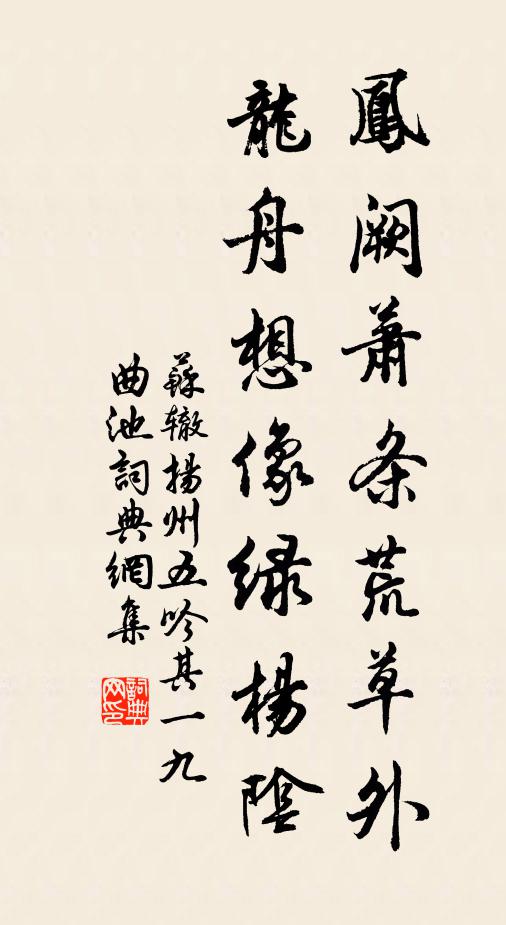 鳳闕蕭条荒草外
龍舟想像緑楊陰
蘇辙揚州五吟其一九
曲池詞典網集
詞典网印